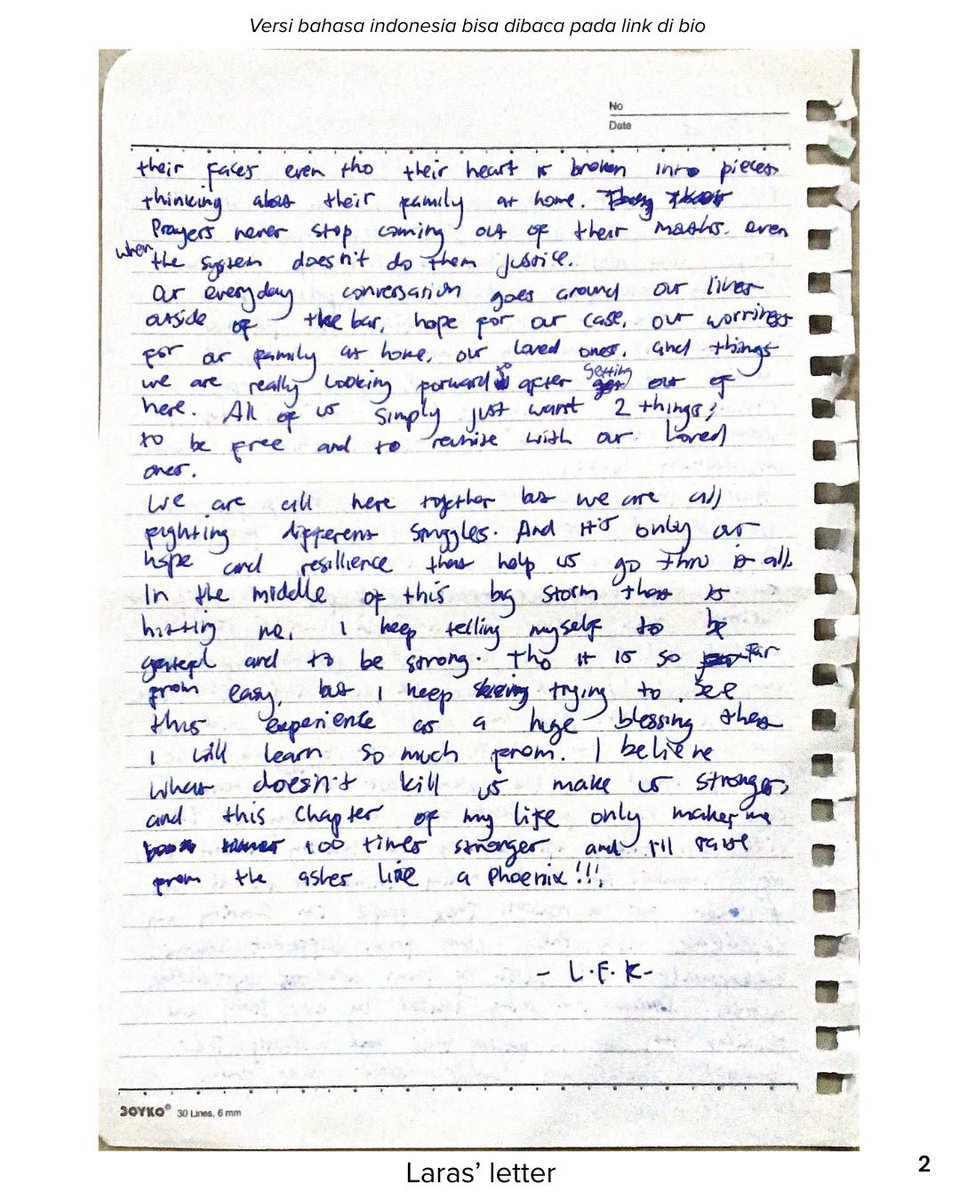 Versi bahasa indonesia bisa dibaca pada link di bio
No
Date
their faces even tho their heart is broken into pieces
thinking about their family at home.
Prayers never stop coming out of their mouths. even
when the system doesn't do them justice.
Our everyday conversation goes around our lives
outside of the bar, hope for our case, our worries
for our family at home, our loved ones, and things
we are really looking forward to after getting out of
here. All of us simply just want 2 things;
to be free and to reunite with our loved
ones.
We are all here together but we are all
fighting different struggles. And it's only our
hope and resillience that help us go thru it all.
In the middle of this big storm that is
hitting me, I keep telling myself to be
grateful and to be strong. Tho it is so far
from easy, but I keep trying to see
this experience as a huge blessing that
I will learn so much from. I believe
what doesn't kill us make us stronger,
and this chapter of my life only makes me
100 times stronger and I'll raise
from the ashes like a phoenix!!!
- L.F.K-
JOYKO® 30 Lines, 6 mm
Laras' letter
2